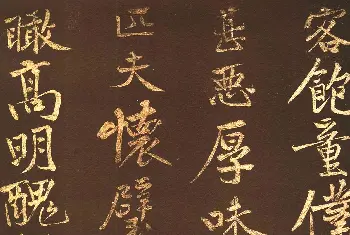 客飽童僕
喜惡厚味
匹夫懷璧
瞰高明醜